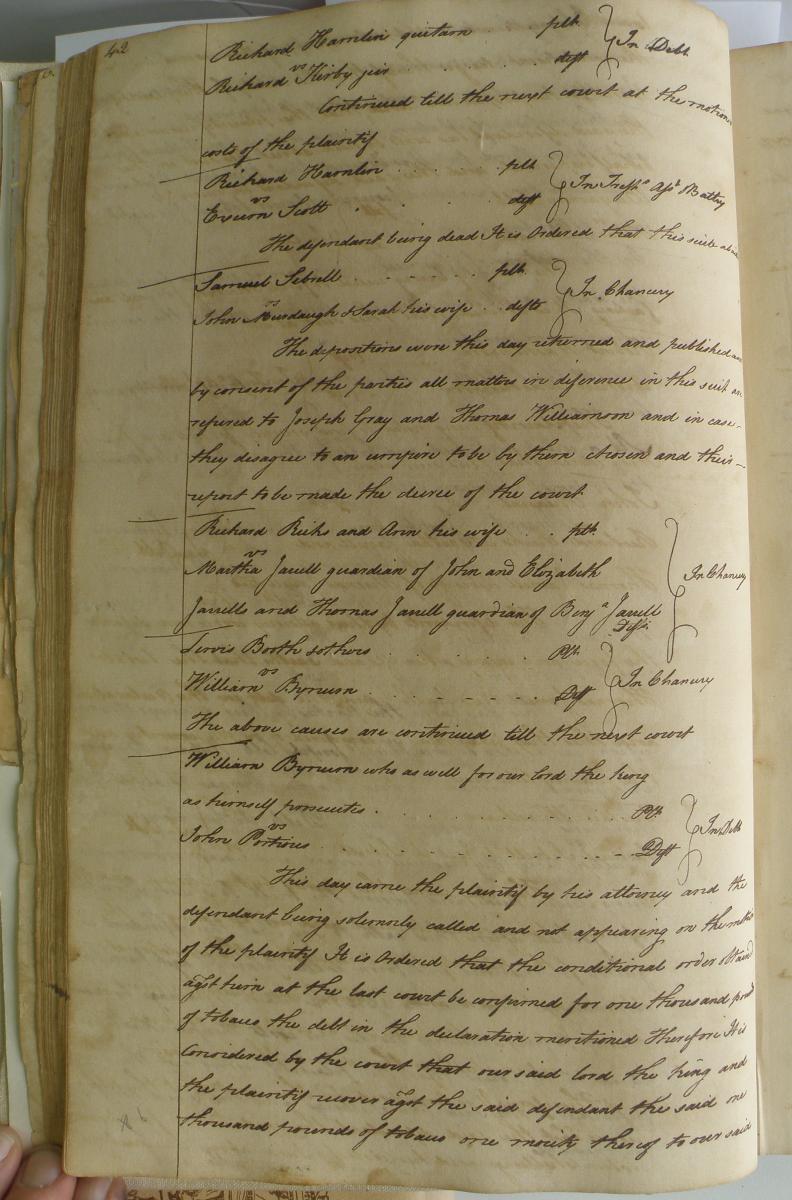 42
Richard Hamlin quitam . . . plt } In Debt
vs
Richard Kirby junr . . . . . . deft
Continued till the next court at the motion
costs of the plaintif
Richard Hamlin . . . . plt } In Tresps Asst Battery
vs
Exum Scott . . . . deft
The defendant being dead It is Ordered that this suit abate
Samuel Sebrell . . . . . . plt } In Chancery
vs
John Murdaugh & Sarah his wife . . defts
The depositions were this day returned and published and
by consent of the parties all matters in diference in this suit are
refered to Joseph Gray and Thomas Williamson and in case
they disagree to an umpire to be by them chosen and their
report to be made the decree of the court
Richard Ricks and Ann his wife . . plts } In Chancery
vs
Martha Jarrell guardian of John and Elizabeth
Jarrells and Thomas Jarrell guardian of Benja Jarrell
Defts
Booth & others . . . . . . Plt } In Chancery
vs
William Bynum . . . . . . . . Deft
The above causes are continued till the next court
William Bynum who as well for our lord the king
as himself prosecutes . . . . . . . . Plt } In Debt
vs
John Portious . . . . . . . . . . Deft
This day came the plaintif by his attorney and the
defendant being solemnly called and not appearing on the motion
of the plaintif It is Ordered that the conditional order obtaind
agst him at the last court be confirmed for one thousand pounds
of tobacco the debt in the declaration mentioned Therefore It is
Considered by the court that our said lord the king and
the plaintif recover agst the said defendant the said one
thousand pounds of tobacco one moiety thereof to our said